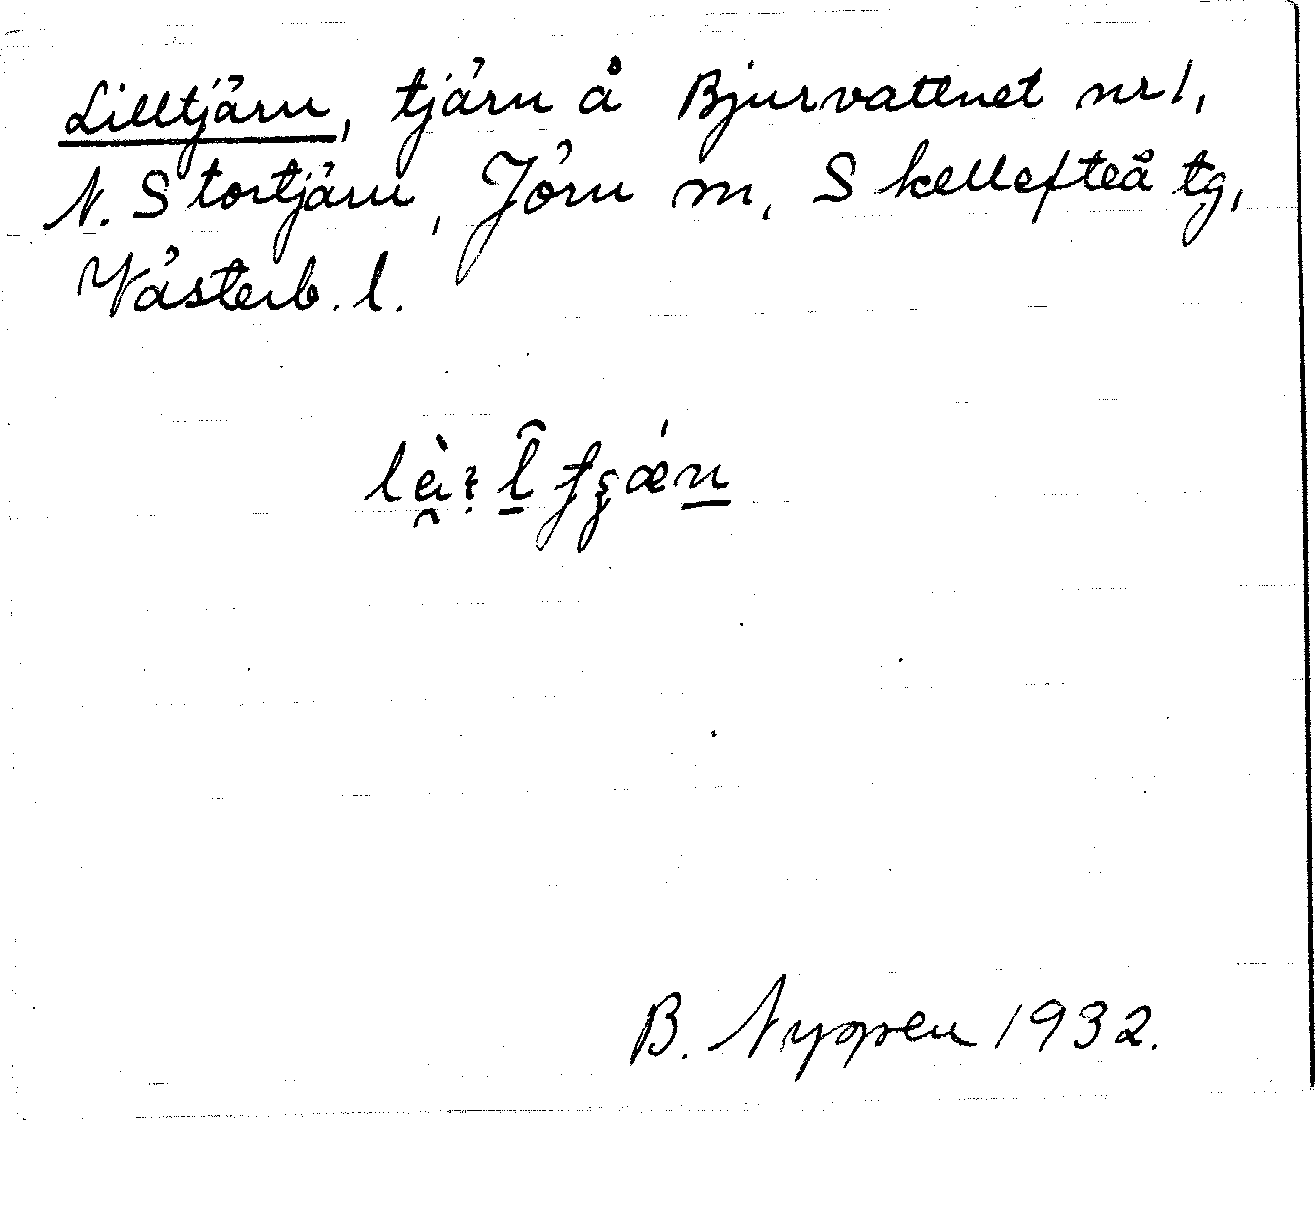 Lilltjärn, tjärn å Bjurvattnet nr 1,
N. Stortjärn, Jörn sn, Skellefteå tg,
Västerb. l.
B. Nyppen 1932.